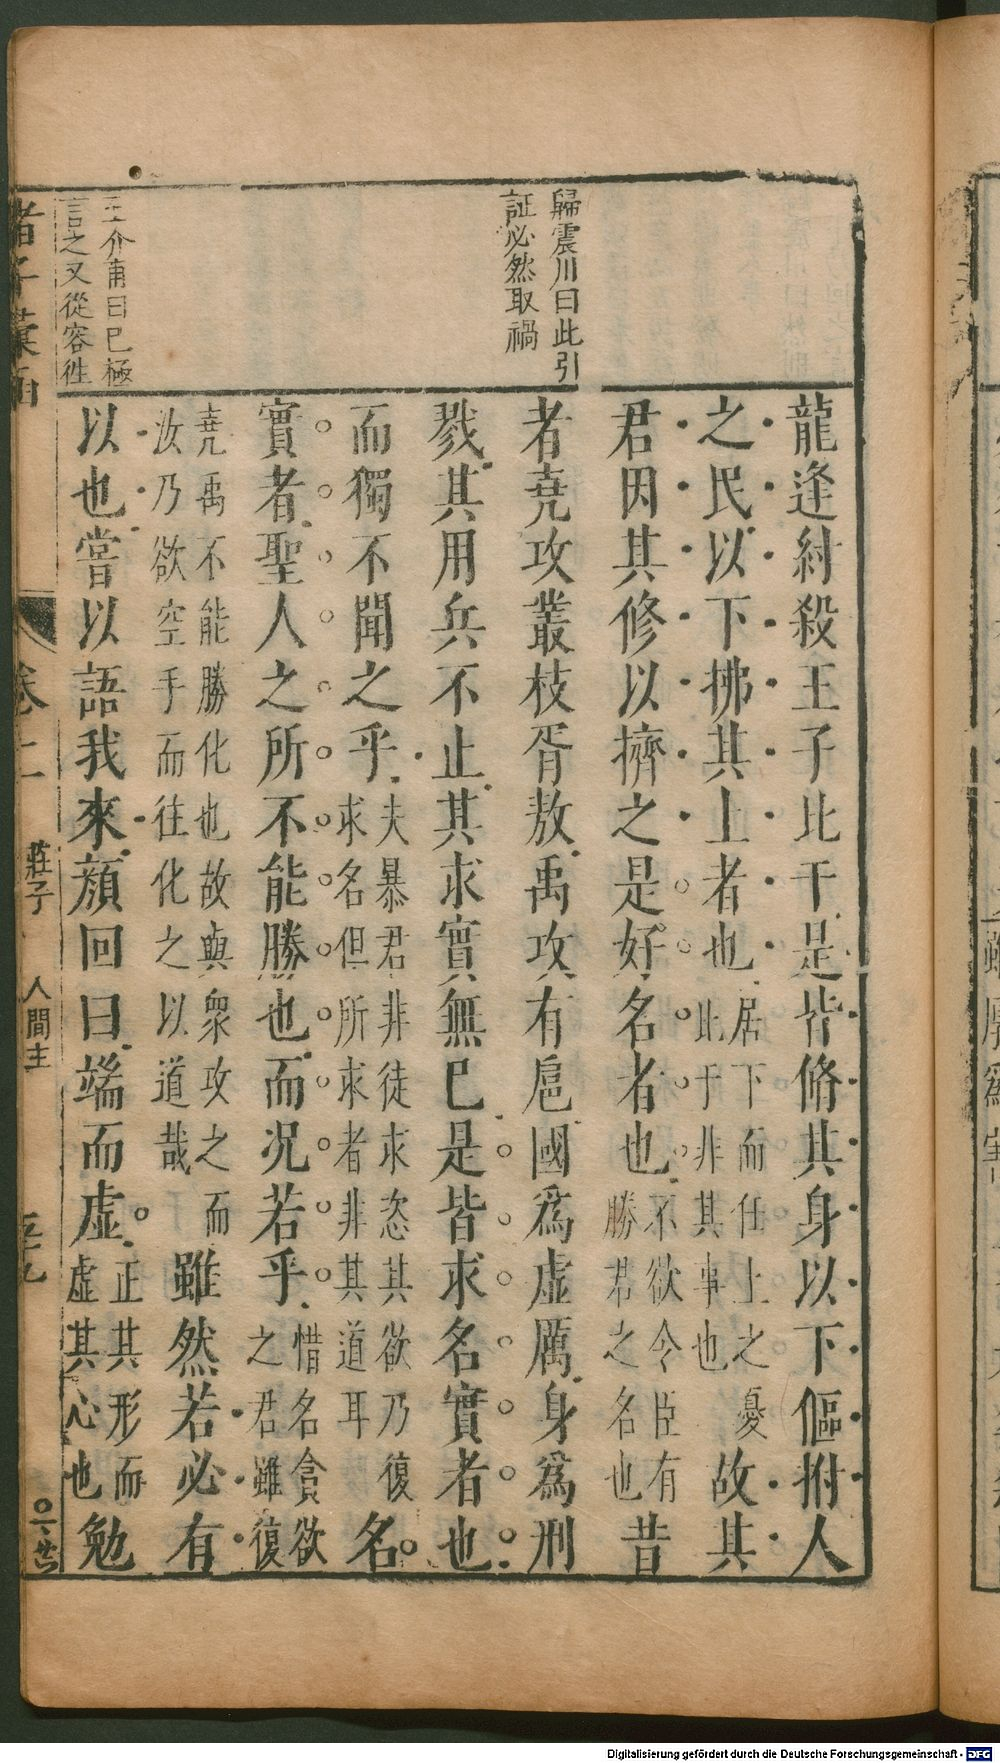 歸震川曰此引
証必然取禍
王介甫曰已極
言之又從容徃
龍逢紂殺王子比干是皆脩其身以下傴拊人
之民以下拂其上者也居下而任上之憂此于非其事也故其
君因其修以擠之是好名者也不欲令臣有勝君之名也昔
者堯攻叢枝胥敖禹攻有扈國爲虛厲身爲刑
戮其用兵不止其求實無已是皆求名實者也
而獨不聞之乎夫暴君非徒求恣其欲乃復求名但所求者非其道耳名
實者聖人之所不能勝也而况若乎惜名貪欲之君雖復
堯禹不能勝化也故與衆攻之而汝乃欲空手而往化之以道哉雖然若必有
以也嘗以語我來顔回曰端而虛正其形而虛其心也勉
諸子彙函
卷二
莊子
人間世
五十九